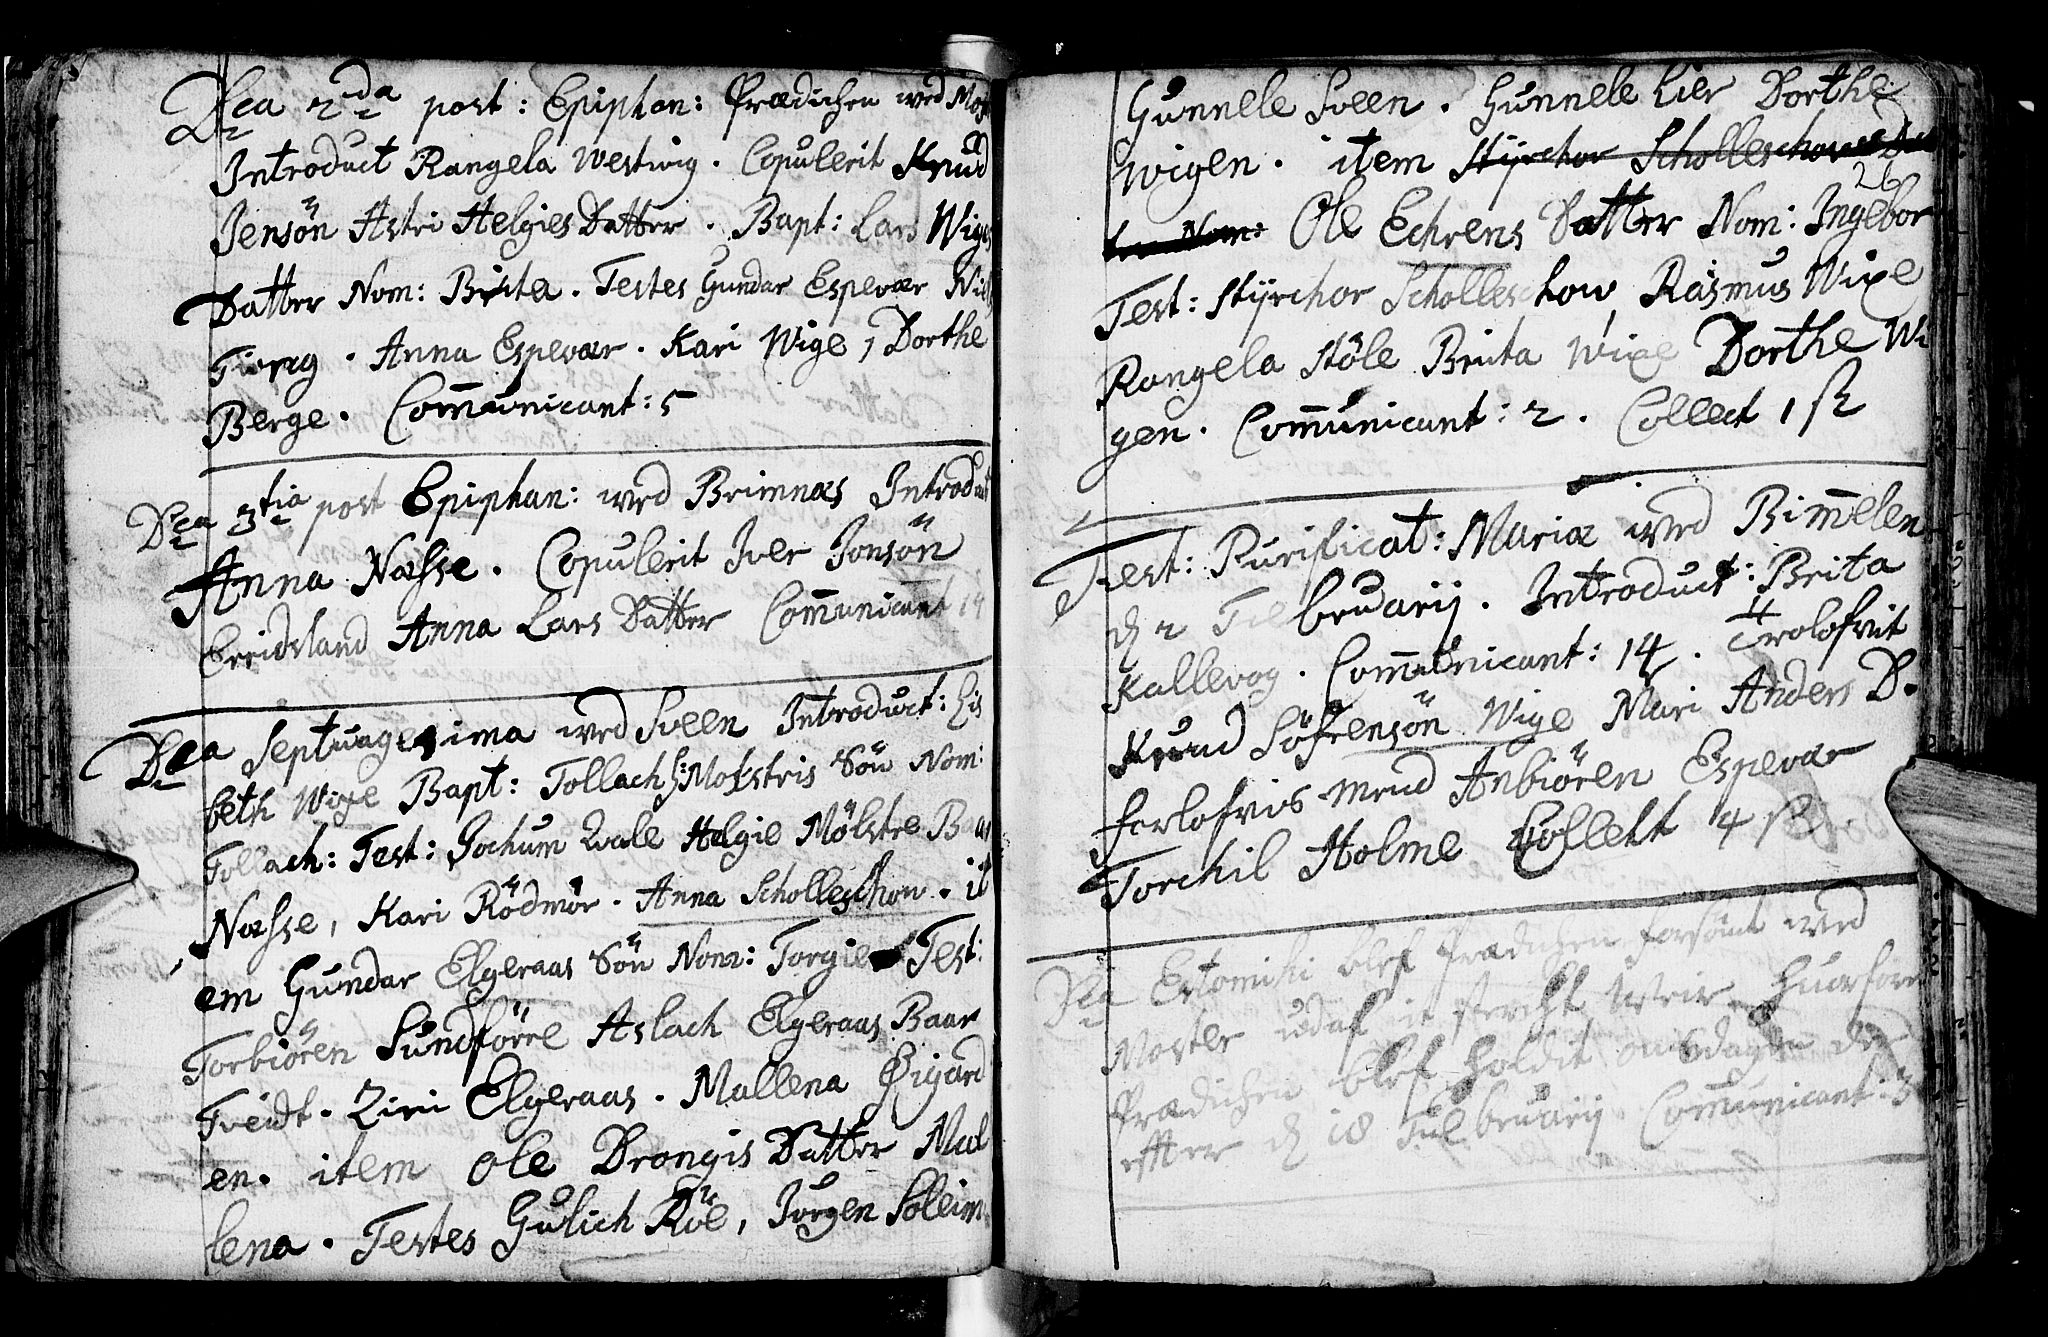 Dca 2da post: Epiphan: Prædichen wed Mos
Introduct Rangela Westwig. Copulerit Knud
Jensön Astri Helgies Datter. Bapt: Lars Wiges
Datter Nom: Brita. Testes Gundar Espevær
Anna Espevær. Kari Wige, Dorthe
Berge. Com̄unicant: 5
Dca 3tia post Epiphan: wed Brimnæs Introduct
Anna Næsse. Copulerit Iver Jonsön
Anna Lars Datter Com̄unicant 14
Dca Septuagesima wed Sveen Introduct: Lis
beth Wige Bapt: Tollach Mølstris Sön Nom:
Tollach: Test: Jochum Qvale Helgie Mölstre
Næsse, Kari Rödmör. Anna Scholleschow. it
em Gundar Elgeraas Sön Nom: Torgie Test:
Torbiören Sundförre Aslach Elgeraas Baar
Tveidt. Ziri Elgeraas. Mallena Øigard
en. item Ole Drongis Datter Mal
lena. Testes Gulich Röe, Jörgen Soleim
Gunnele Sveen. Gunnele Lier Dorthe
wigen. item Styrchor Scholleschows Dat
ter Nom: Ole Echrens Datter Nom: Ingebor
26
Test: Styrchor Scholleschow, Rasmus Wige
Rangela Stöle Brita Wige Dorthe Wi
gen. Com̄unicant: 2. Collect 1 ß
Fest: Purificat: Mariæ wed Bim̄elen
d 2 Februarij. Introduct: Brita
Kallevog. Com̄unicant: 14. Trolofvit
Knud Söfrensön Wige Mari Anders D.
forlofvis mend Anbiören Espevær
Torchil Holme Collekt 4 ß
Dca Estomihi blef Prædichen forsömt wed
Moster udaf it sterht Weir, huorfore
Prædichen blef holdit onsdagen der
effter d 18 Februarij Com̄unicant: 3